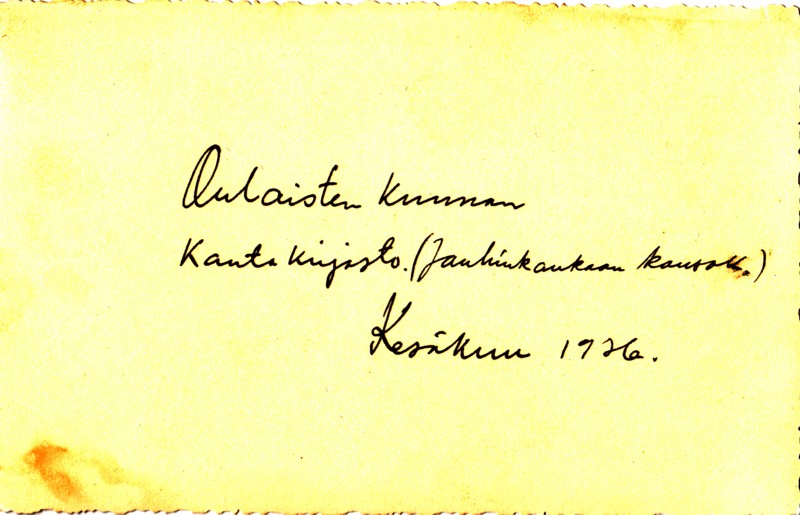 Oulaisten kunnan
Kantakirjasto. (Jauhinkankaan kansak.)
Kesäkuu 1936.